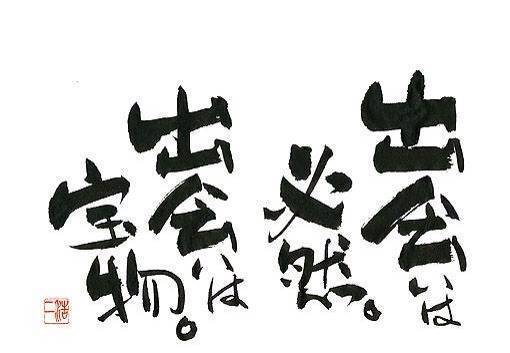 出会いは
必然。
出会いは
宝物。